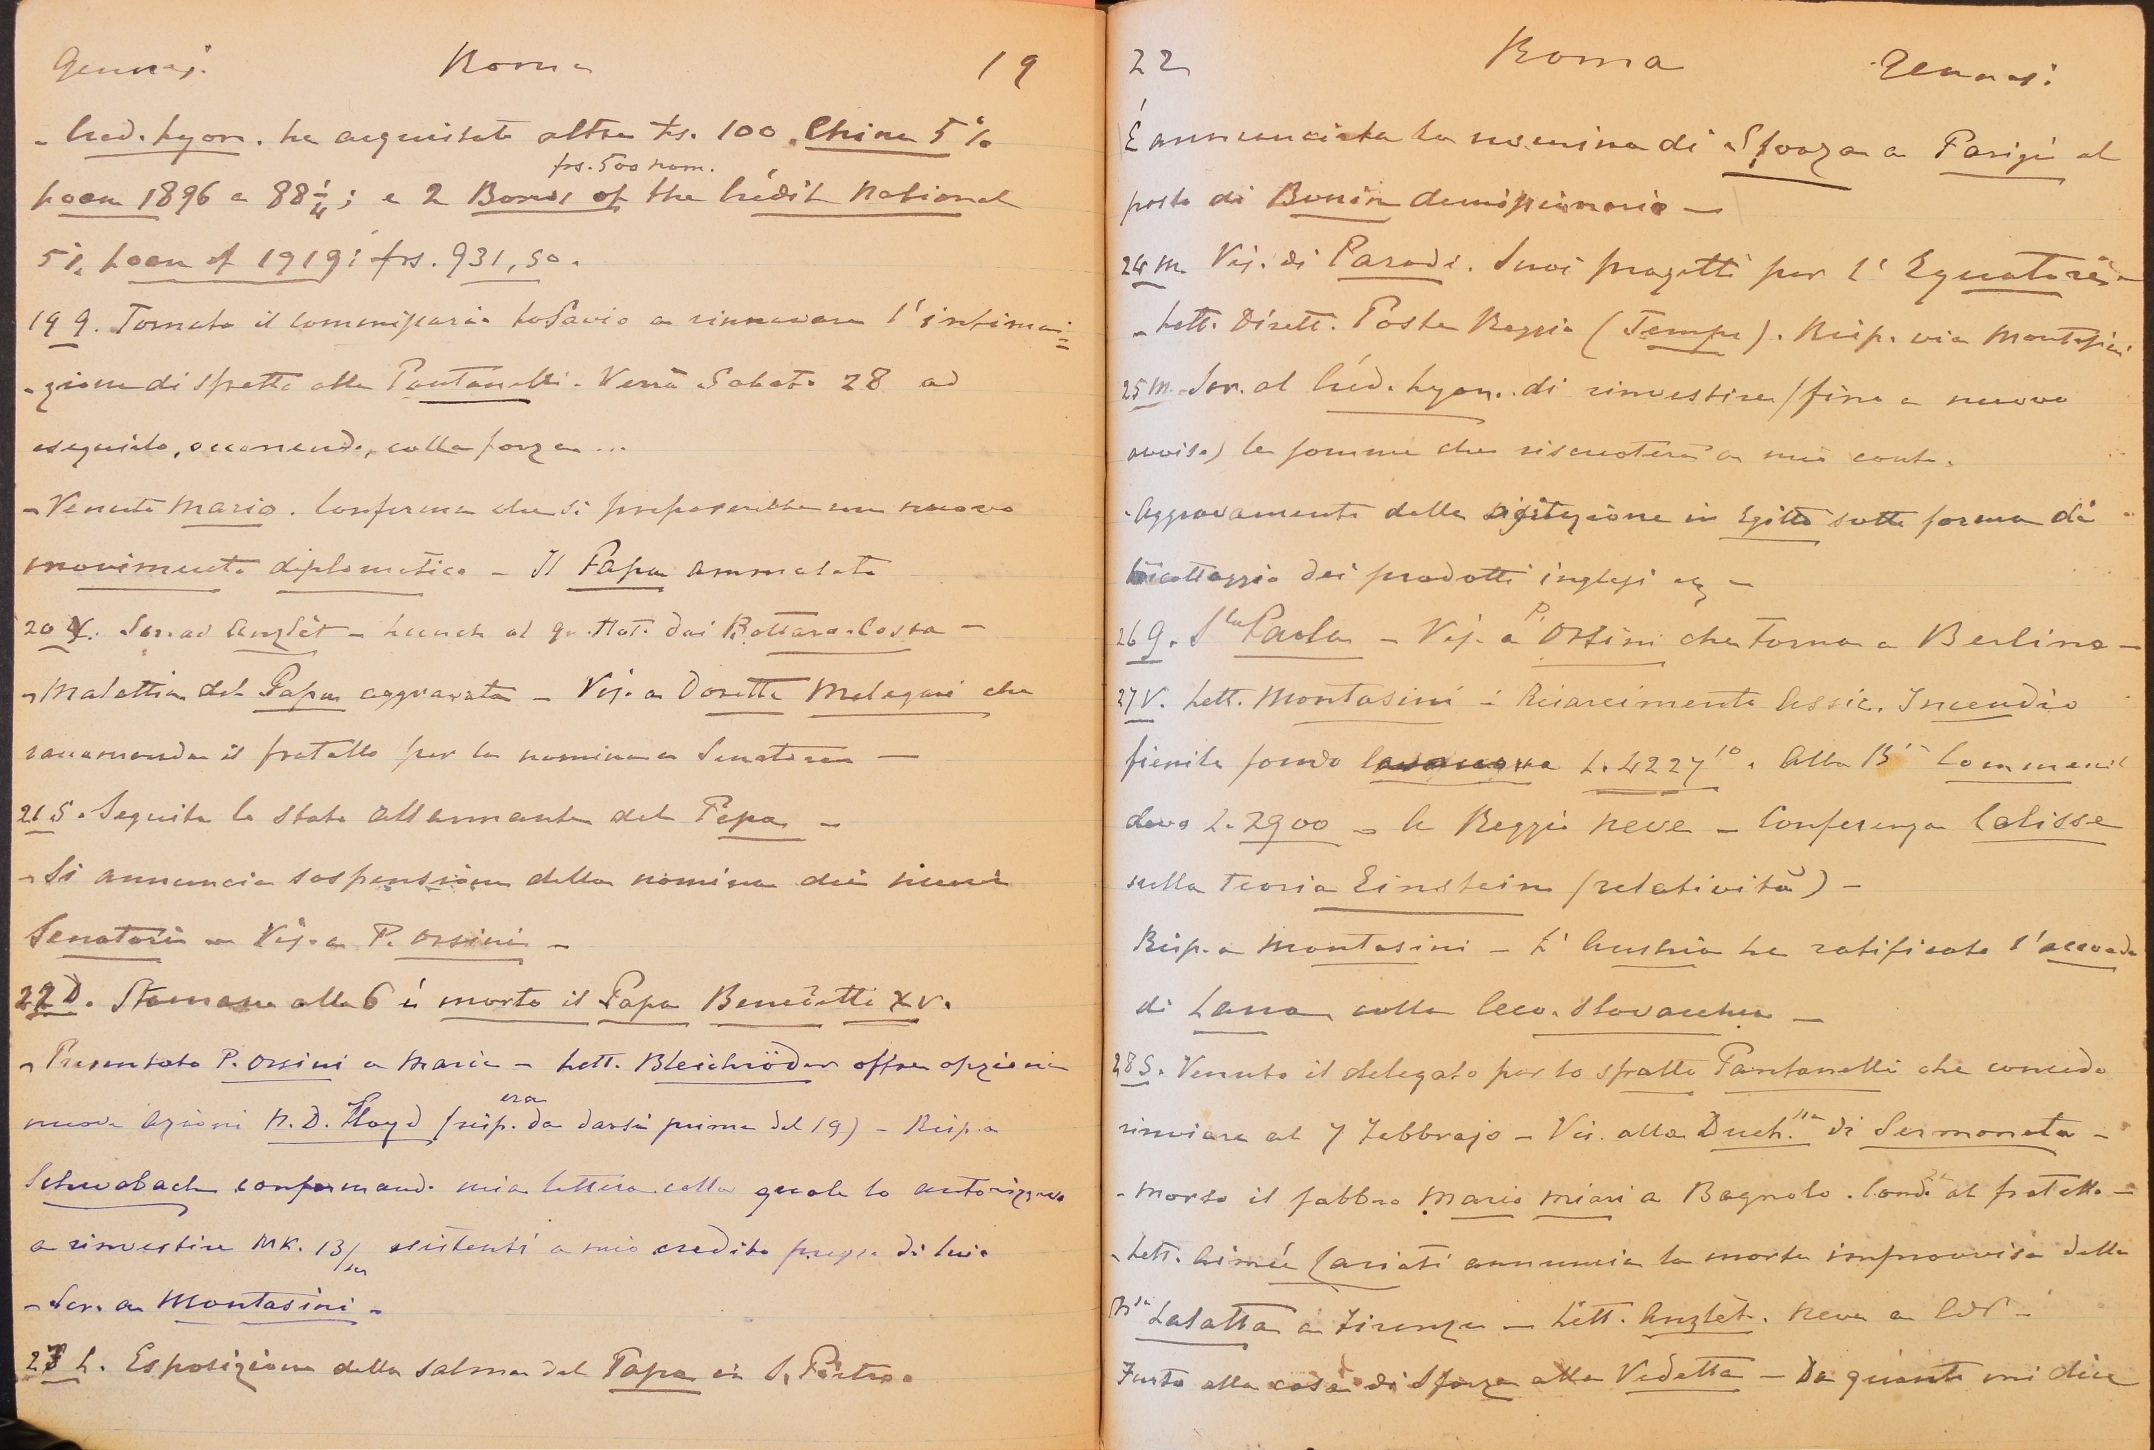 Gennaj. Roma 19
- Créd. Lyon. ha acquistato altre frs. 100. China 5%
frs. 500 nom.
Loan 1896 a 88 1/4; e 2 Bonds of the Crédit National
5% Loan of 1919: frs. 931,50.
19 G. Tornato il commissario LoSavio a rinnovare l'intima-
-zione di sfratto alla Pantanelli. Verrà Sabato 28 ad
eseguirlo, occorrendo, colla forza...
- Venuto Mario. Conferma che si preparerebbe un nuovo
movimento diplomatico - Il Papa ammalato
20 V. Scr. ad Anzlèt - Lunch al gr. Hot. dai Bottaro-Costa -
- Malattia del Papa aggravata - Vis. a Dorette Melegari che
raccomanda il fratello per la nomina a Senatore -
21 S. Seguita lo stato allarmante del Papa -
- Si annuncia sospensione della nomina dei nuovi
Senatori - Vis. a P. Orsini -
22 D. Stamane alle 6 è morto il Papa Benedetto XV.
- Presentato P. Orsini a Maria - Lett. Bleichröder offre opzione
era
nuove azioni N. D. Lloyd (risp. da darsi prima del 19) - Risp. a
Schwabach confermando mia lettera colla quale lo autorizzavo
a rinvestire MK. 13/m esistenti a mio credito presso di lui.
- Scr. a Montasini -
23 L. Esposizione della salma del Papa in S. Pietro.
22 Roma Gennaj.
È annunciata la nomina di Sforza a Parigi al
posto di Bonin dimissionario -
24 M. Vis. di Parodi. Suoi progetti per l'Equatoria
- Lett. Dirett. Poste Reggio (Temps). Risp. via Montasini
25 M. Scr. al Créd. Lyon. di rinvestire (fino a nuovo
avviso) le somme che riscuoterà a mio conto.
- Aggravamento della agitazione in Egitto sotto forma di
boicottaggio dei prodotti inglesi ecc -
26 G. Sta Paola - Vis. a P. Orsini che torna a Berlino -
27 V. Lett. Montasini - Risarcimento Assic. Incendio
fienile fondo L. 4227,10. Alla Bsa
devo L. 2900 - A Reggio neve - Conferenza Calisse
sulla teoria Einstein (relatività) -
Risp. a Montasini - L'Austria ha ratificato l'accordo
di Lana colla Ceco-Slovacchia -
28 S. Venuto il delegato per lo sfratto Pantanelli che concede
rinviare al 7 Febbrajo - Vis. alla Duch.ssa di Sermoneta -
- Morto il fabbro Mario Miari a Bagnolo. Cond. al fratello -
- Lett. Aimée annuncia la morte improvvisa della
Msa Lalatta a Firenze - Lett. Anzlèt. Neve a
Furto alla casa di Sforza alla Vedetta - Da quanto mi dice